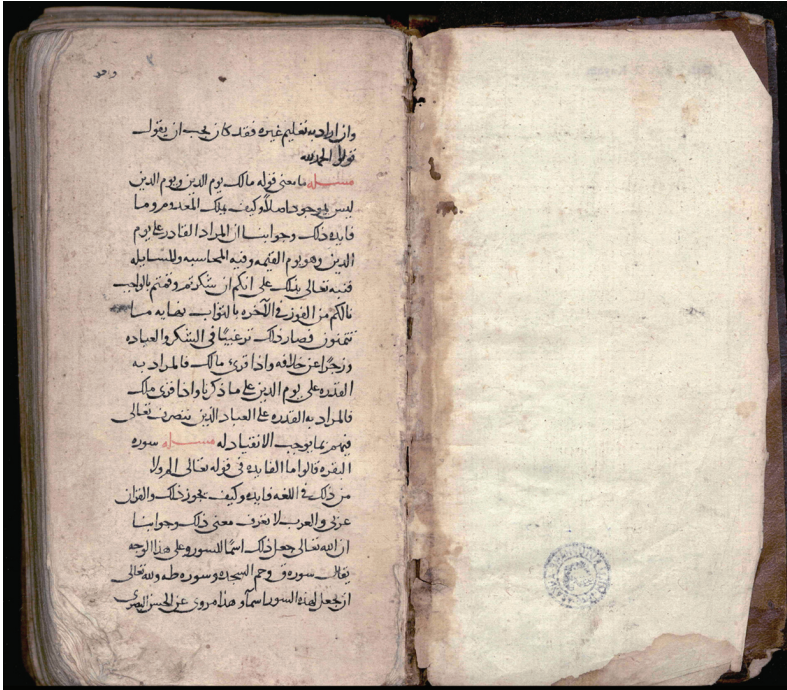 وان اراد به تعليم غيره فقد كان يجب ان يقول
قولوا الحمد لله
مسله ما معنى قوله مالك يوم الدين ويوم الدين
ليس بموجود حاصلا وكيف يملك المعدوم وما
فايده ذلك وجوابنا ان المراد القادر على يوم
الدين وهو يوم القيمه وفيه المحاسبه والمسايله
فنبه تعالى بذلك على انكم ان شكرتم وقمتم بالواجب
فالكم من الفوز في الآخره بالثواب نهايه ما
تتمنون فصار ذلك ترغيبًا في الشكر والعباده
وزجرًا عن خالفه واذا قرى مالك فالمراد به
القدره على يوم الدين على ما ذكرنا واذا قرى ملك
فالمراد به القدره على العباد الذين يتصرف تعالى
فيهم بما يوجب الانقياد له مسله سوره
البقره قالوا ما الفايده في قوله تعالى الم ولا
من ذلك في اللغه فايده وكيف يجوز ذلك والقران
عربى والعرب لا تعرف معنى ذلك وجوابنا
ان الله تعالى جعل ذلك اسمًا للسوره وعلى هذا الوجه
يقال سوره ق وحم السجده وسوره طه ولله تعالى
ان يجعل لهذه السور اسمآ وهذا مروى عن الحسن البصرى